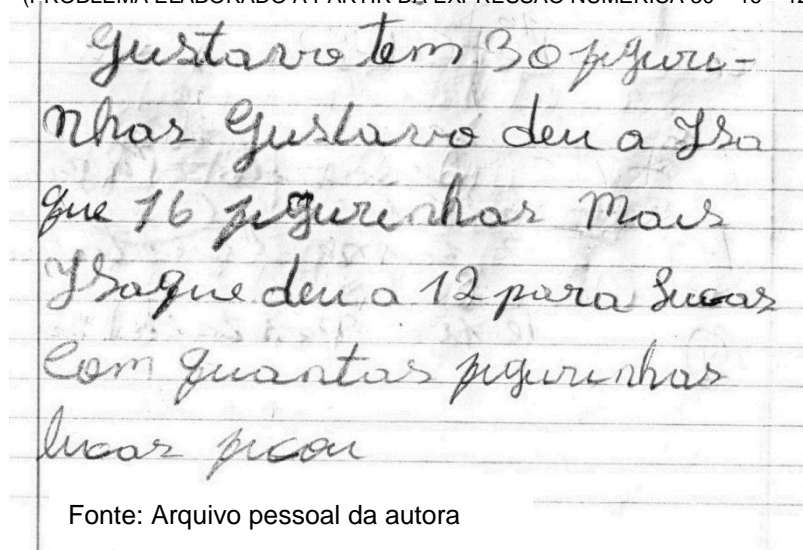 (PROBLEMA ELABORADO A PARTIR DA EXPRESSÃO NUMÉRICA 30 – 16 – 12
Gustavo tem 30 figuri-
nhas Gustavo deu a Isa
que 16 figurinhas Mais
Isaque deu a 12 para Lucas
Com quantas figurinhas
lucas ficou
Fonte: Arquivo pessoal da autora